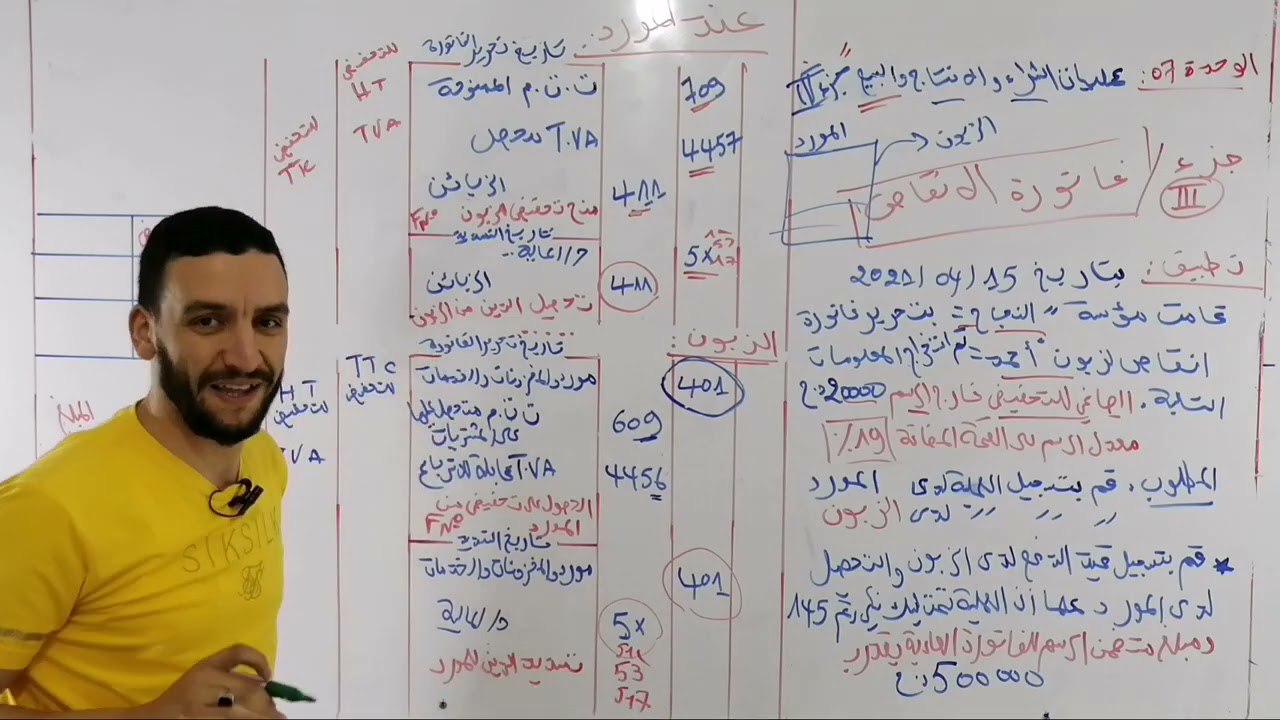 الوحدة 07: عمليات الشراء والانتاج والبيع "جزء II"
المورد
الزبون
جزء III / فاتورة الانقاص
تطبيق: بتاريخ 15 /04 /2021
قامت مؤسسة "النجاح" بتحرير فاتورة
انقاص لزبون "أحمد" تم استخراج المعلومات
التالية. الصافي للتخفيض خارج الرسم 20000 دج
معدل الرسم على القيمة المضافة 19٪
المطلوب. قم بتسجيل العملية لدى المورد
" " " لدى الزبون
* قم بتسجيل قيد الدفع لدى الزبون والتحصل
لدى المورد علما أن العملية تمت بشيك بنكي رقم 145
ومبلغ متضمن الرسم للفاتورة العادية يقدر ب
500000 دج
عند المورد:
تاريخ تحرير الفاتورة
709
ت.ت.م الممنوحة
HT
للتخفيض
4457
T.VA محصل
TVA
411
الزبائن
للتخفيض
TTC
منح تخفيض للزبون
F N°
تاريخ التسديد
5x
53
517
ح/ المالية..
411
الزبائن
تحصيل الدين من الزبون
الزبون:
تاريخ تحرير الفاتورة
401
موردو المخزونات والخدمات
TTC
للتخفيض
609
ت.ت.م متحصل عليها
على المشتريات
HT
للتخفيض
4456
TVA قابلة للاسترجاع
TVA
الحصول على تخفيض من
المورد F N°
تاريخ التسديد
401
موردو المخزونات والخدمات
5x
ح/ المالية
تسديد الدين للمورد
53
517
المبلغ
SIKSILK